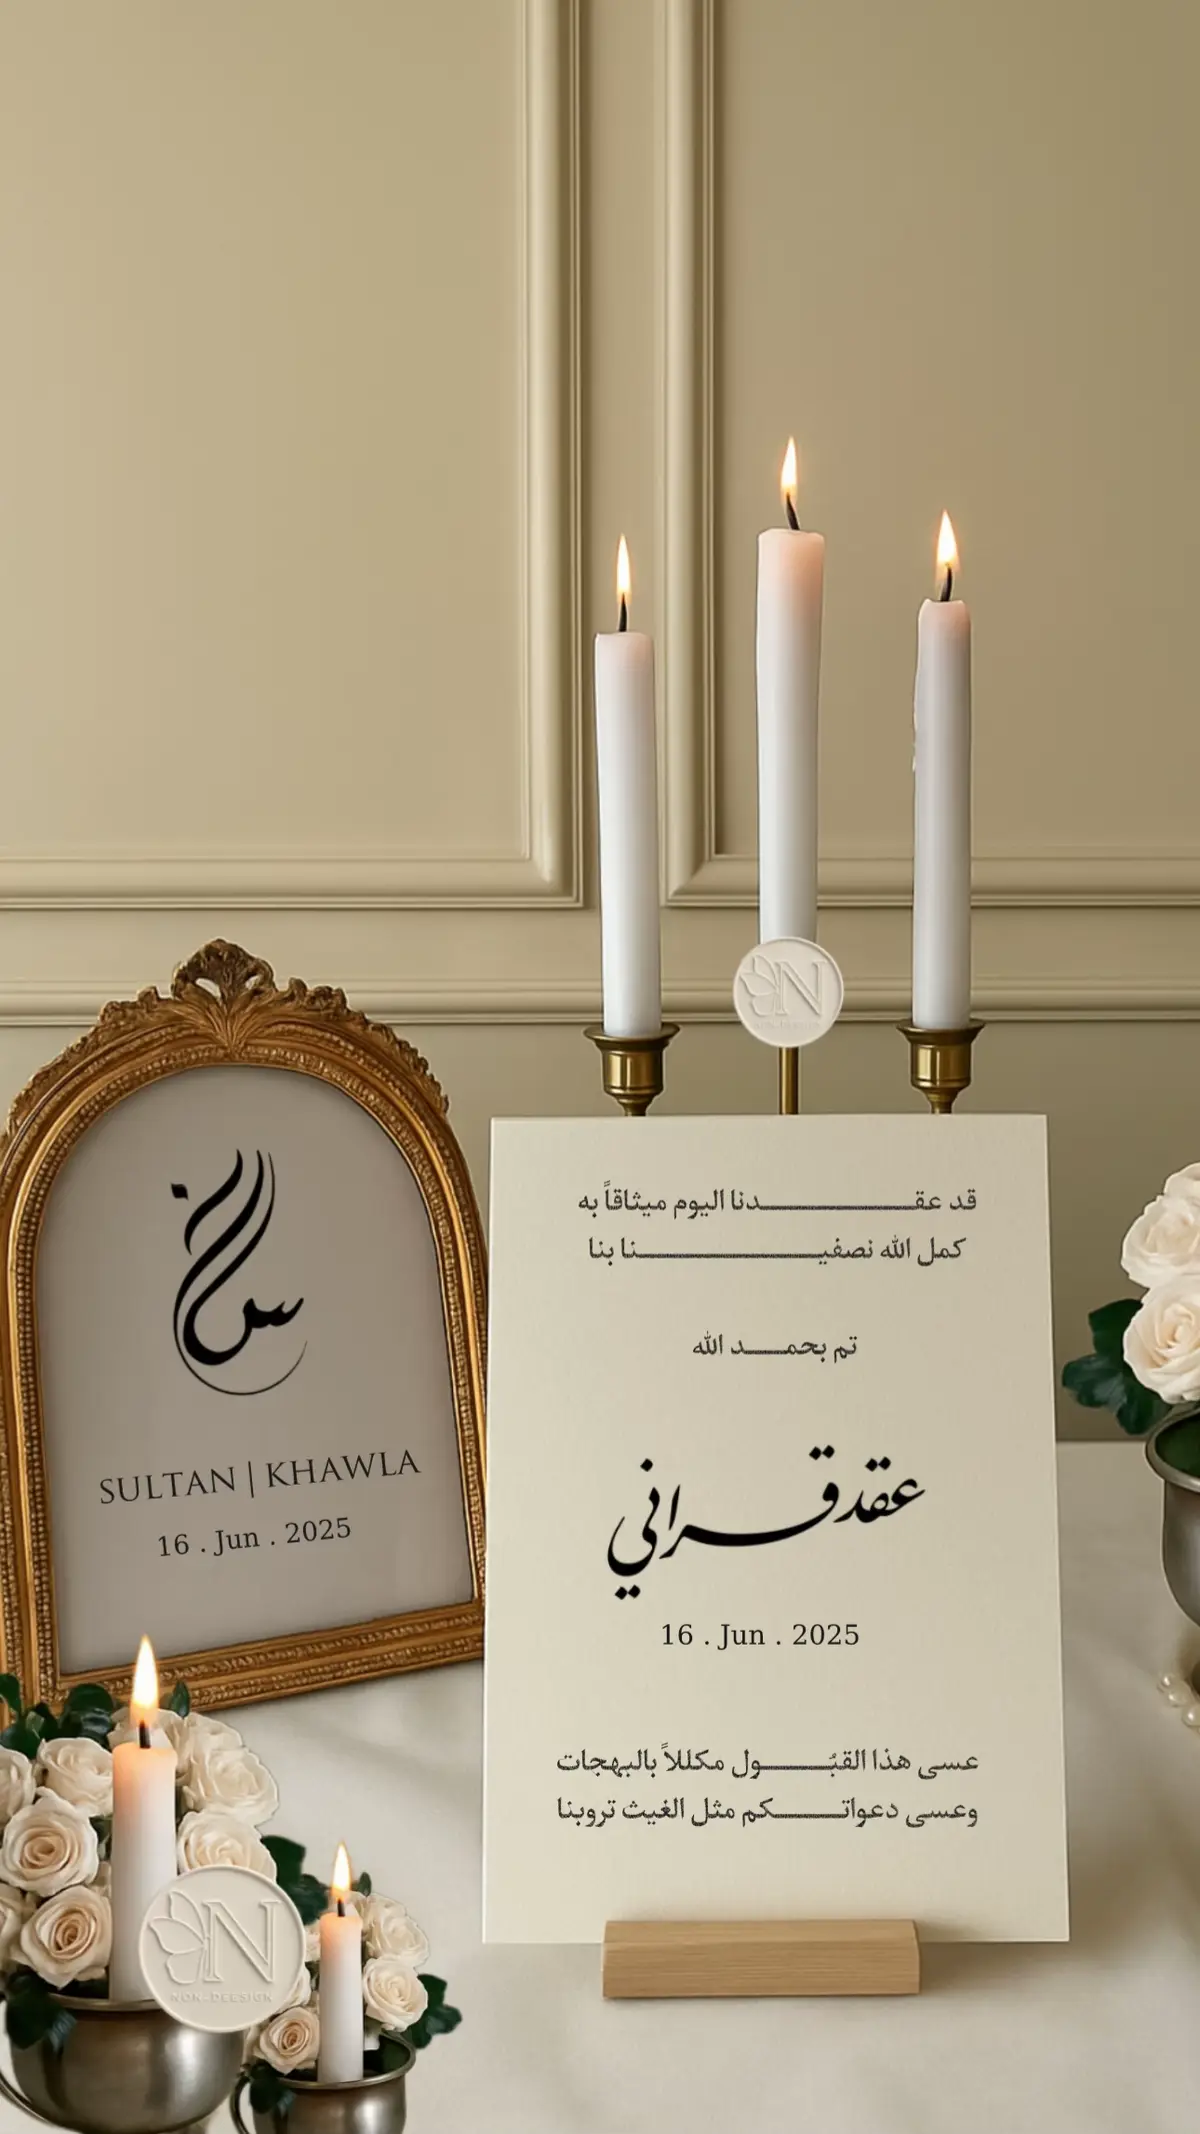 س خ
SULTAN | KHAWLA
16 . Jun . 2025
قد عقـــــــــدنا اليوم ميثاقاً به
كمل الله نصفيـــــــــــنا بنا
تم بحمـــــد الله
عقد قراني
16 . Jun . 2025
عسى هذا القبُـــــــول مكللاً بالبهجات
وعسى دعواتـــــــكم مثل الغيث تروينا
N
NON-DEESIGN
N